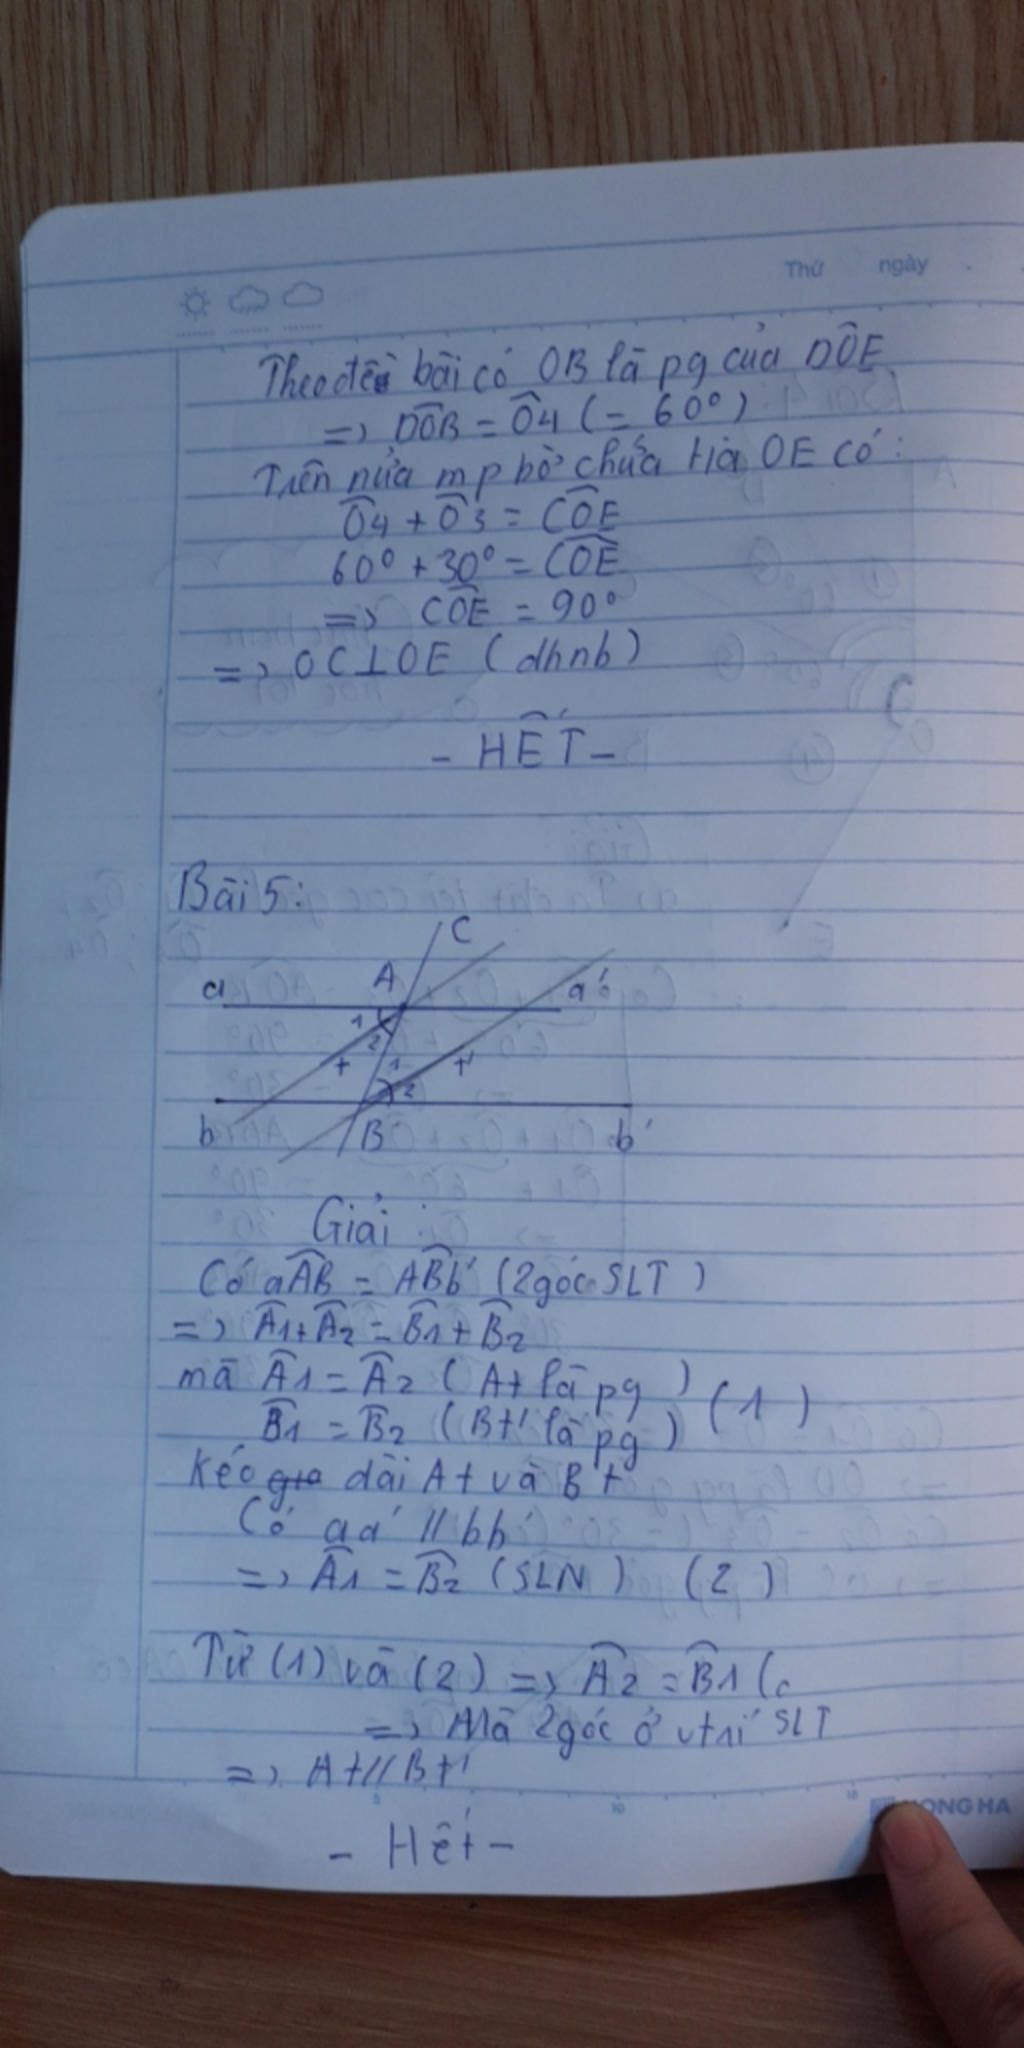 Thứ ngày
Theo đề bài có OB là pg của DÔE
=> DÔB = Ô4 (= 60°)
Trên nửa mp bờ chứa tia OE có:
Ô4 + Ô3 = CÔE
60° + 30° = CÔE
=> CÔE = 90°
=> OC⊥OE (dhnb)
- HẾT -
Bài 5:
C
A
a a'
1
2 1
t t'
2
b B b'
Giải:
Có aÂB = AB̂b' (2 góc SLT)
=> Â1 + Â2 = B̂1 + B̂2
mà Â1 = Â2 (At là pg) (1)
B̂1 = B̂2 (Bt' là pg)
kéo dài At và Bt
Có aa' // bb'
=> Â1 = B̂2 (SLN) (2)
Từ (1) và (2) => Â2 = B̂1 (c
=> Mà 2 góc ở vtrí SLT
=> At // Bt'
5 10 15
HONG HA
- Hết -